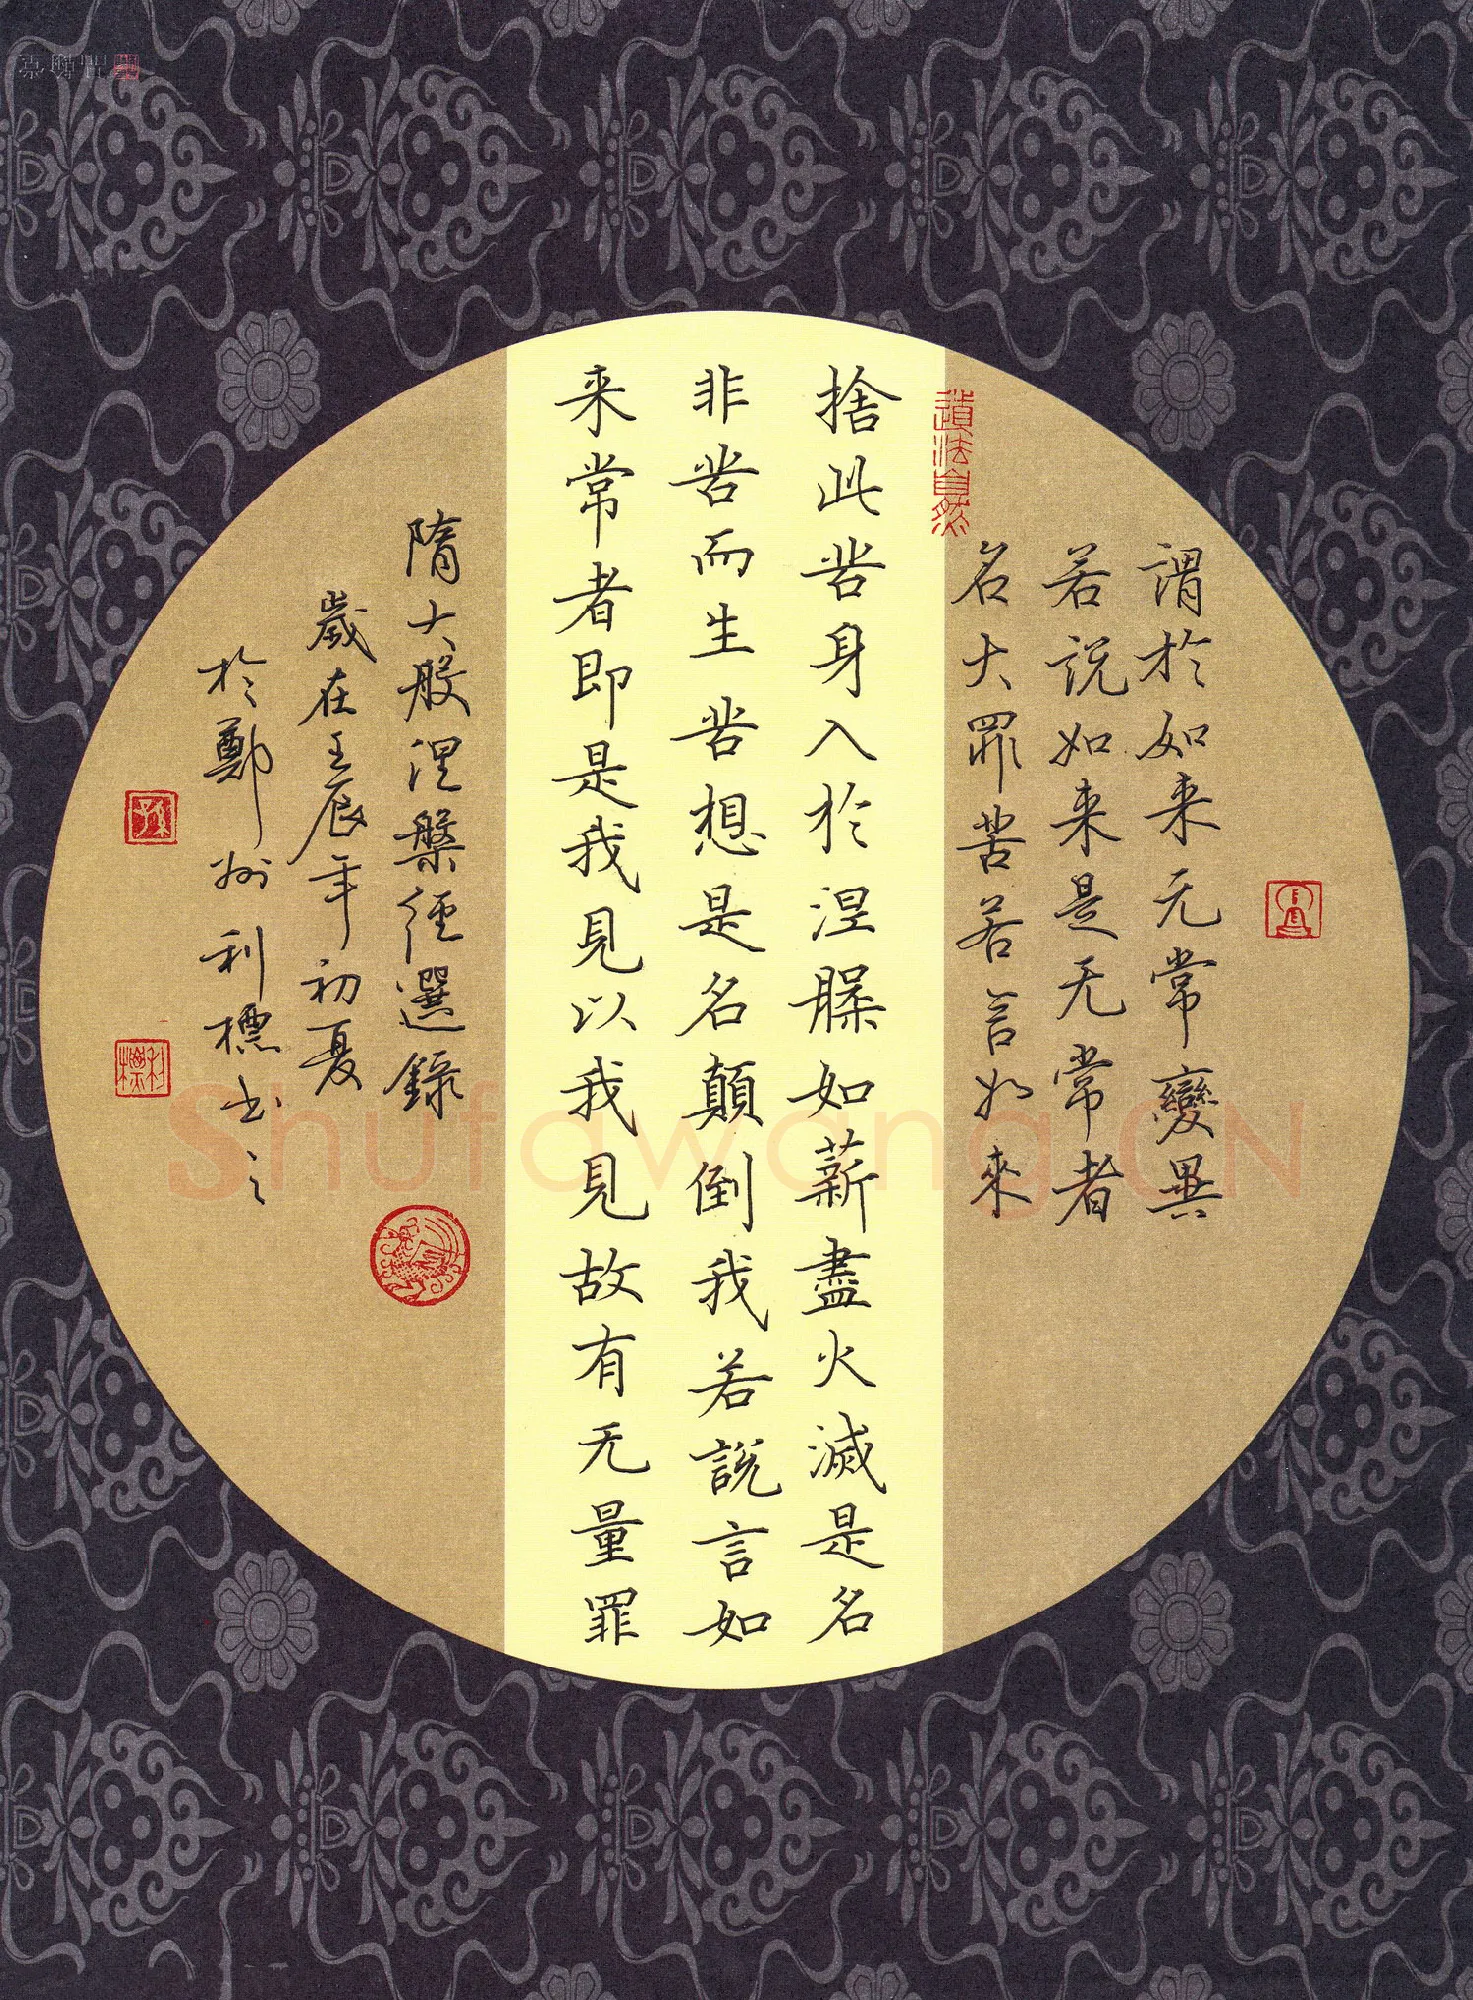 謂於如来无常變異
若説如来是无常者
名大罪苦若言如來
道法自然
捨此苦身入於涅槃如薪盡火滅是名
非苦而生苦想是名顛倒我若說言如
来常者即是我見以我見故有无量罪
隋大般涅槃經選錄
歲在壬辰年初夏
於鄭州利標书之
利標
Shufawang.CN